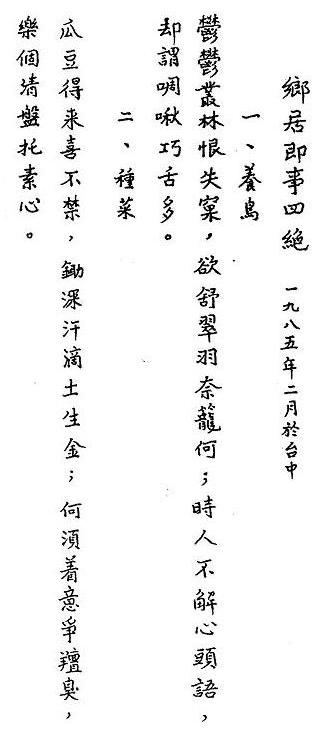 鄉居即事四絕 一九八五年二月於台中
一、養鳥
鬱鬱叢林恨失窠，欲舒翠羽奈籠何；時人不解心頭語，
却謂啁啾巧舌多。
二、種菜
瓜豆得来喜不禁，鋤深汗滴土生金；何須着意爭羶臭，
樂個清盤托素心。